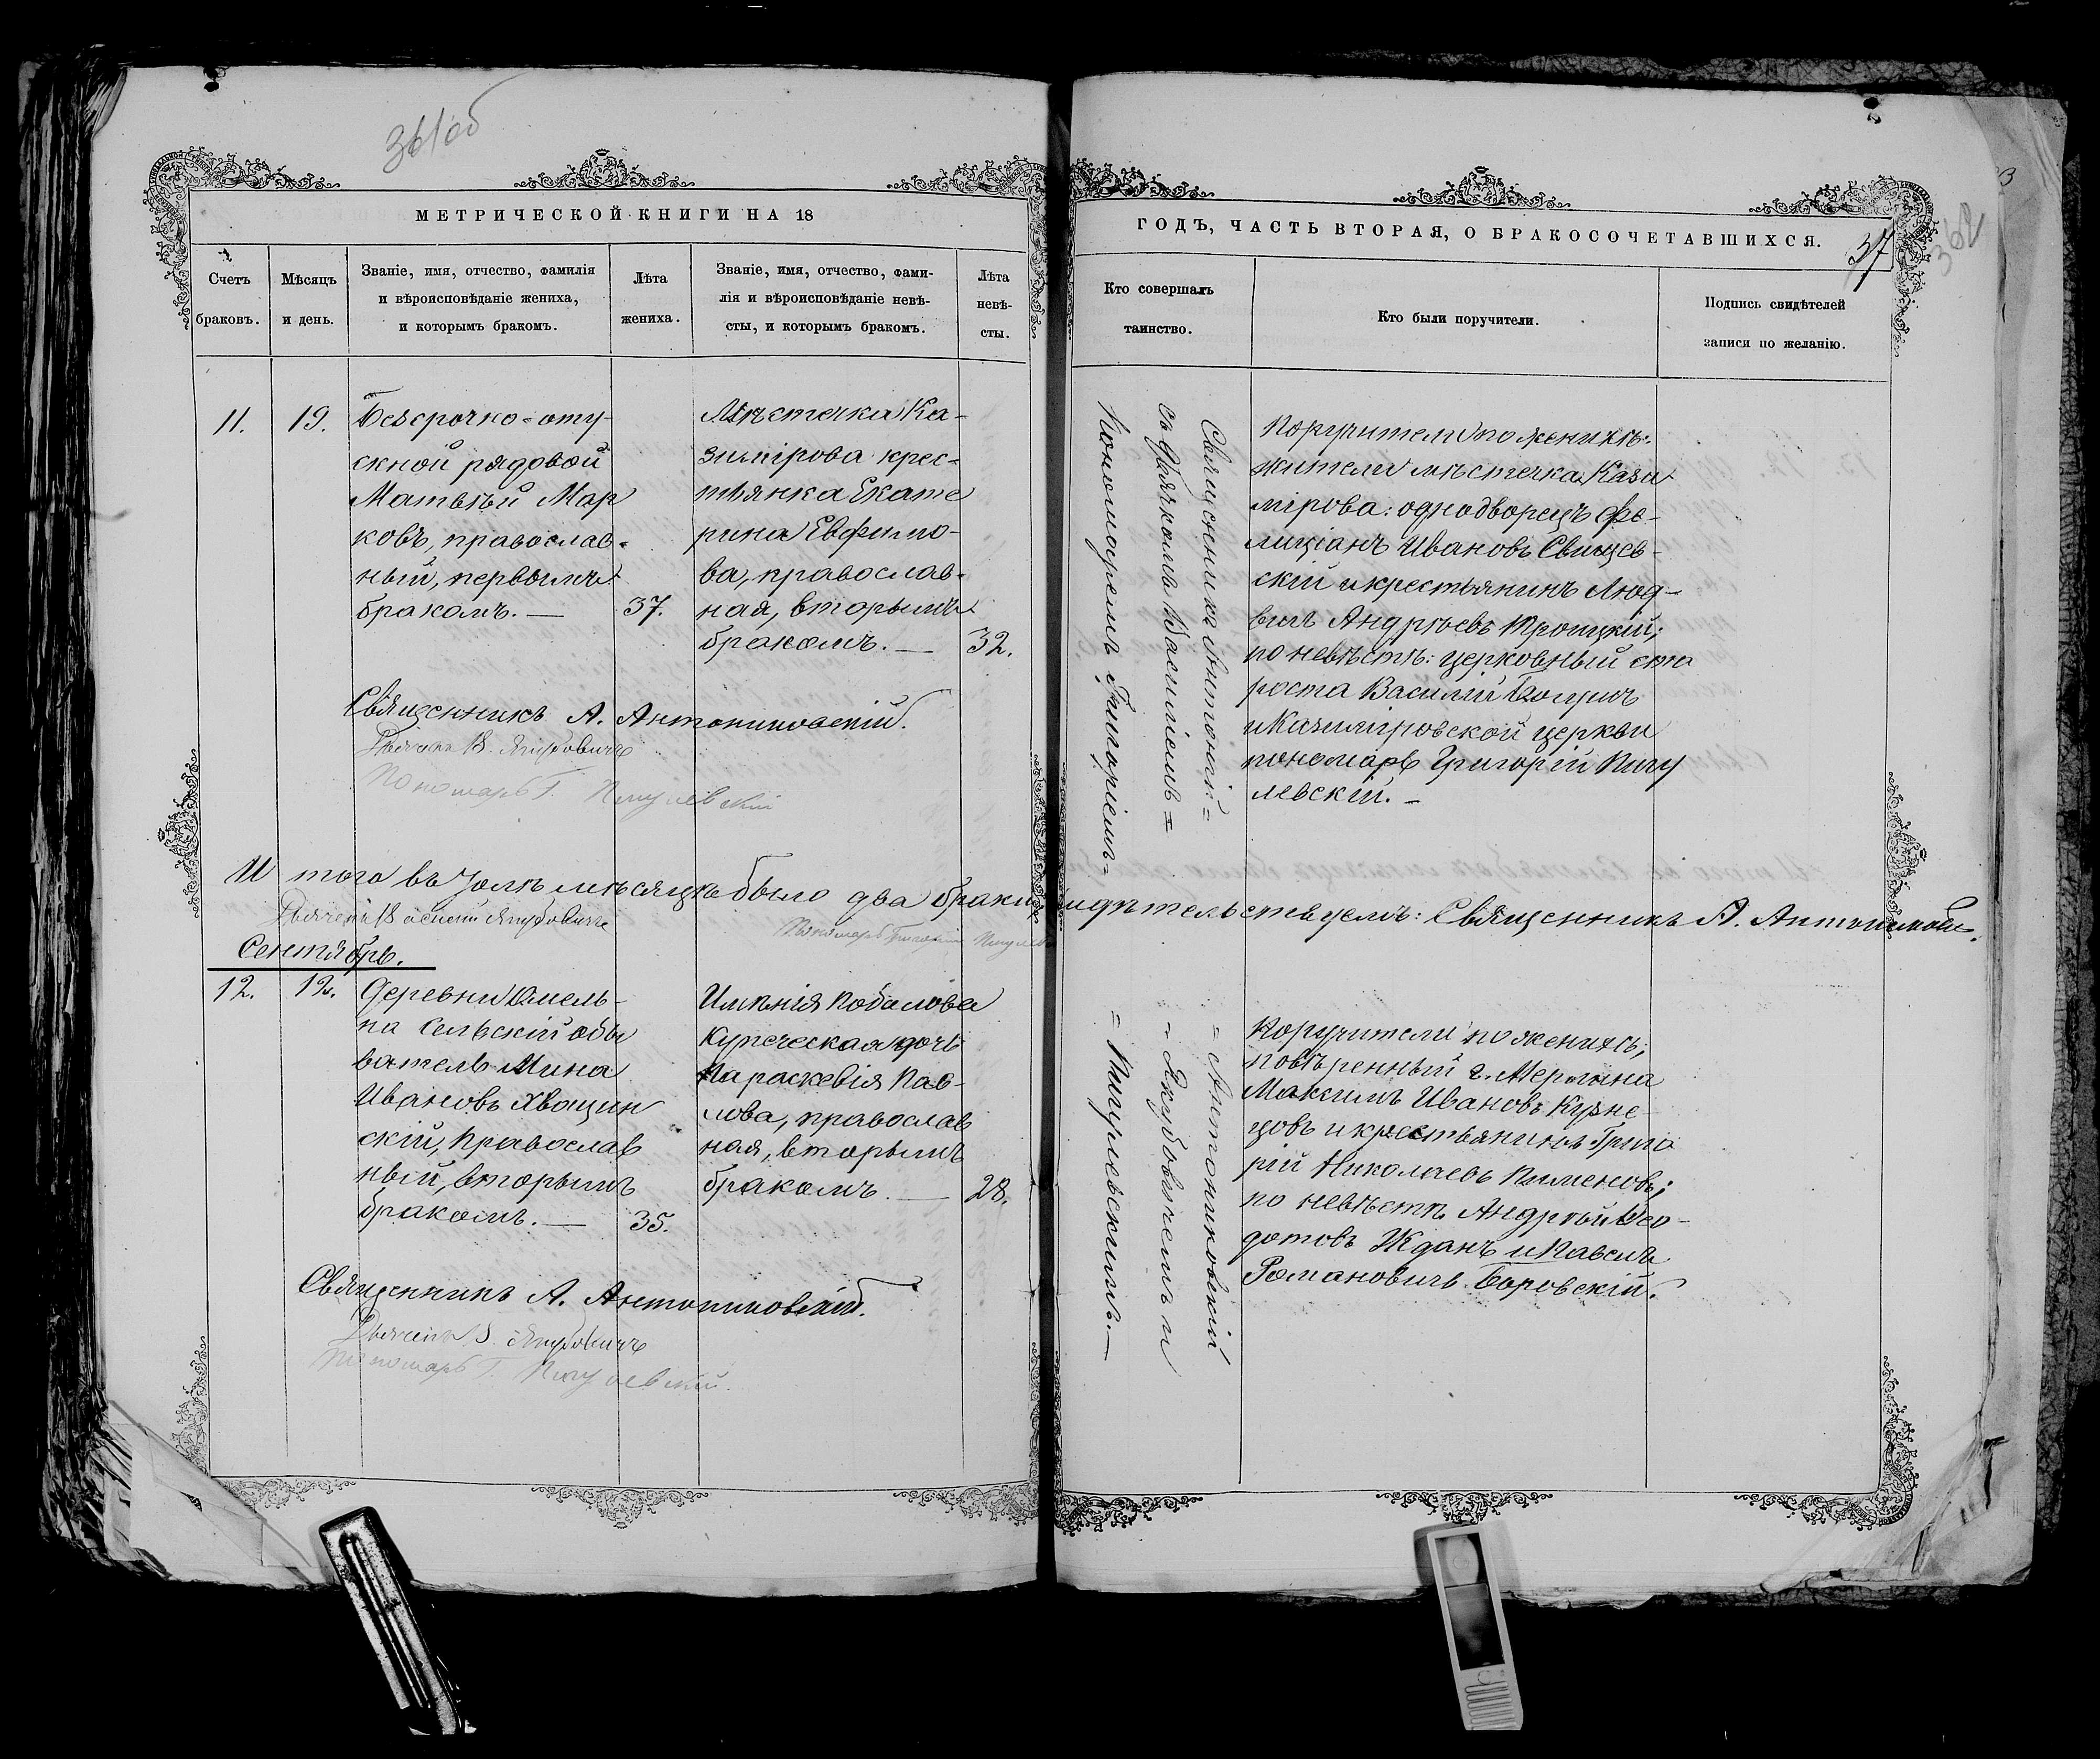 361об
МЕТРИЧЕСКОЙ КНИГИ НА 18
Счетъ
браковъ.
Мѣсяцъ
и день.
Званіе, имя, отчество, фамилія
и вѣроисповѣданіе жениха,
и которымъ бракомъ.
Лѣта
жениха.
Званіе, имя, отчество, фами-
лія и вѣроисповѣданіе невѣ-
сты, и которымъ бракомъ.
Лѣта
невѣ-
сты.
11.
19.
Безсрочно-отпу-
скной рядовой
Матвѣй Мар
ковъ, православ-
ный, первымъ
бракомъ. —
37.
Мѣстечка Ка-
зимірова крес-
тьянка Екате
рина Евфимо-
ва, православ-
ная, вторымъ
бракомъ. —
32.
Священникъ А. Антониковскій.
Дьячекъ В. Якубовичъ
Пономарь Г. Пигулевскій
Итого въ Іюлѣ мѣсяцѣ было два брака. Свидѣтельствуемъ: Священникъ А. Антониковскій.
Дьячекъ Василій Якубовичъ
Пономарь Григорій Пигулев
Сентябрь.
12.
12.
Деревни Омель-
на сельскій обы
ватель Мина
Ивановъ Хвощин
скій, православ
ный, вторымъ
бракомъ. —
35.
Имѣнія Побалова
купеческая дочь
Параскевія Пав-
лова, православ
ная, вторымъ
бракомъ. —
28.
Священникъ А. Антониковскій.
Дьячекъ В. Якубовичъ
Пономарь Г. Пигулевскій.
ГОДЪ, ЧАСТЬ ВТОРАЯ, О БРАКОСОЧЕТАВШИХСЯ.
37
362
Кто совершалъ
таинство.
Кто были поручители.
Подпись свидѣтелей
записи по желанію.
Священникъ Антоній = = Антониковскій
съ дьячкомъ Василіемъ = - Якубовичемъ и
пономаремъ Григоріемъ = = Пигулевскимъ. —
Поручители по женихѣ:
жители мѣстечка Кази
мірова: однодворецъ Фе-
лиціанъ Ивановъ Свищев-
скій и крестьянинъ Люд-
вигъ Андреевъ Троицкій;
по невѣстѣ: церковный ста
роста Василій
и Казиміровской церкви
пономарь Григорій Пигу
левскій. —
Поручители по женихѣ;
повѣренный г.
Максимъ Ивановъ Кузне-
цовъ и крестьянинъ Григо
рій Николаевъ Пименовъ;
по невѣстѣ Андрей Ѳео-
дотовъ Жданъ и Павелъ
Романовичъ Боровскій.